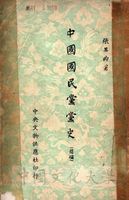 張其昀著
中國國民黨黨史
中央文物供應社印行
中國文化大